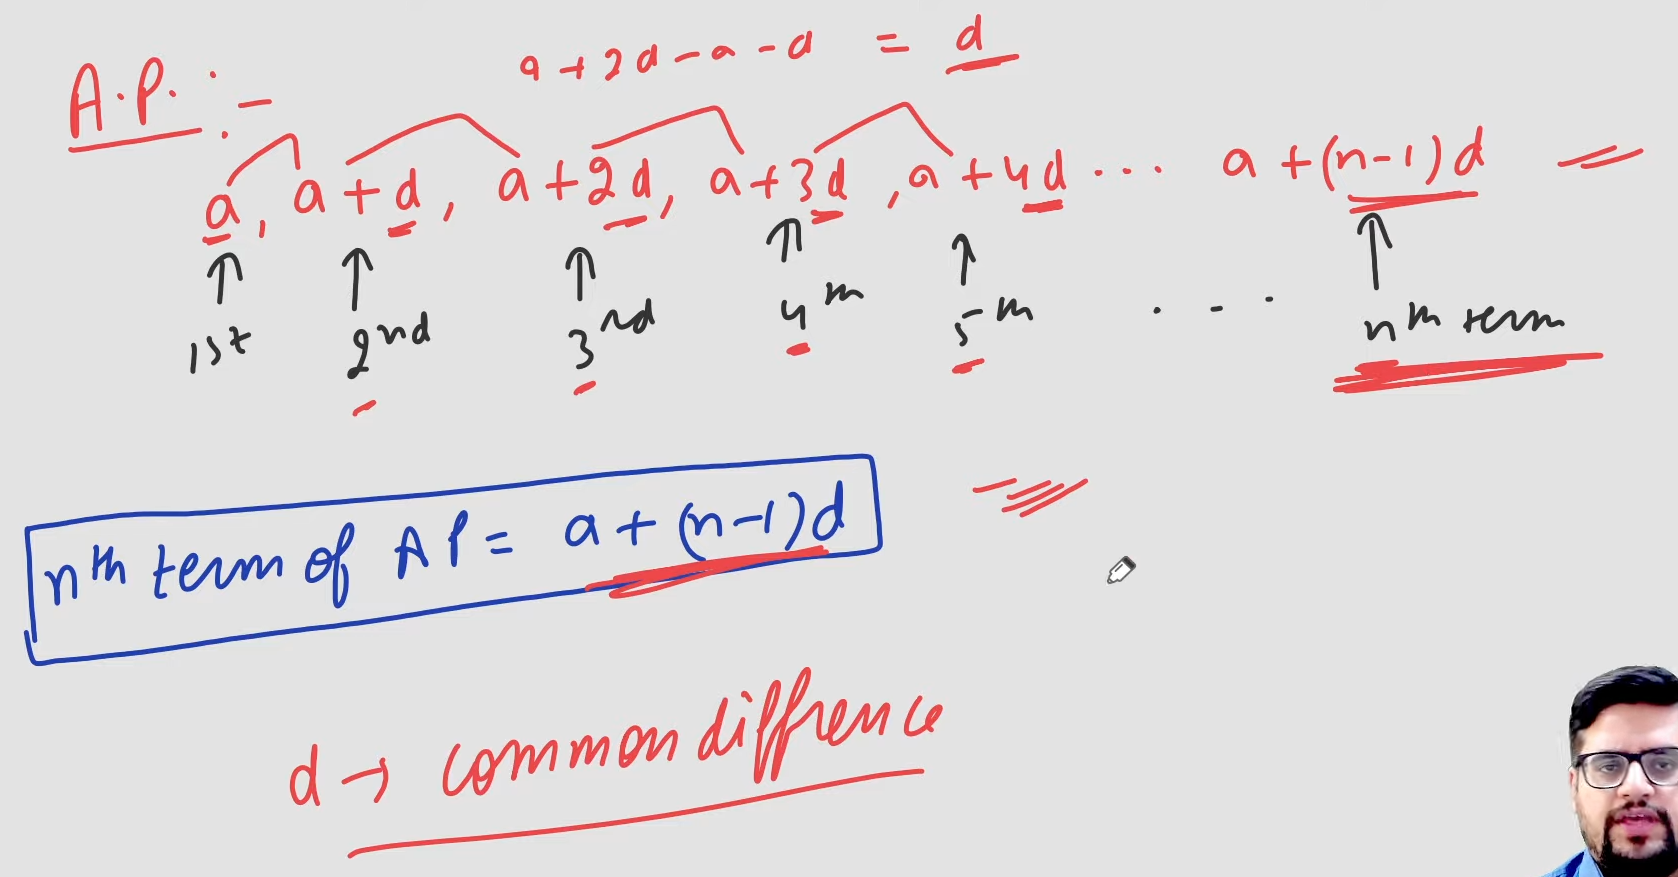 a + 2d - a - d = d
A.P. :-
a, a + d, a + 2d, a + 3d, a + 4d ... a + (n-1)d
1st 2nd 3rd 4th 5th ... nth term
nth term of AP = a + (n-1)d
d → common diffrence